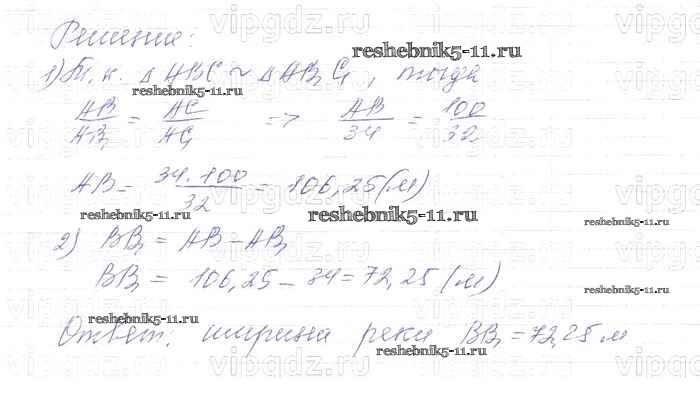 Решение:
1) Т.к. △ABC ~ △AB₁C₁, тогда
AB/AB₁ = AC/AC₁ => AB/34 = 100/32
AB = 34·100/32 = 106,25 (м)
2) BB₁ = AB - AB₁
BB₁ = 106,25 - 34 = 72,25 (м)
Ответ: ширина реки BB₁ = 72,25 м
reshebnik5-11.ru
reshebnik5-11.ru
reshebnik5-11.ru
reshebnik5-11.ru
reshebnik5-11.ru
reshebnik5-11.ru
reshebnik5-11.ru
reshebnik5-11.ru
vipgdz.ru
vipgdz.ru
vipgdz.ru
vipgdz.ru